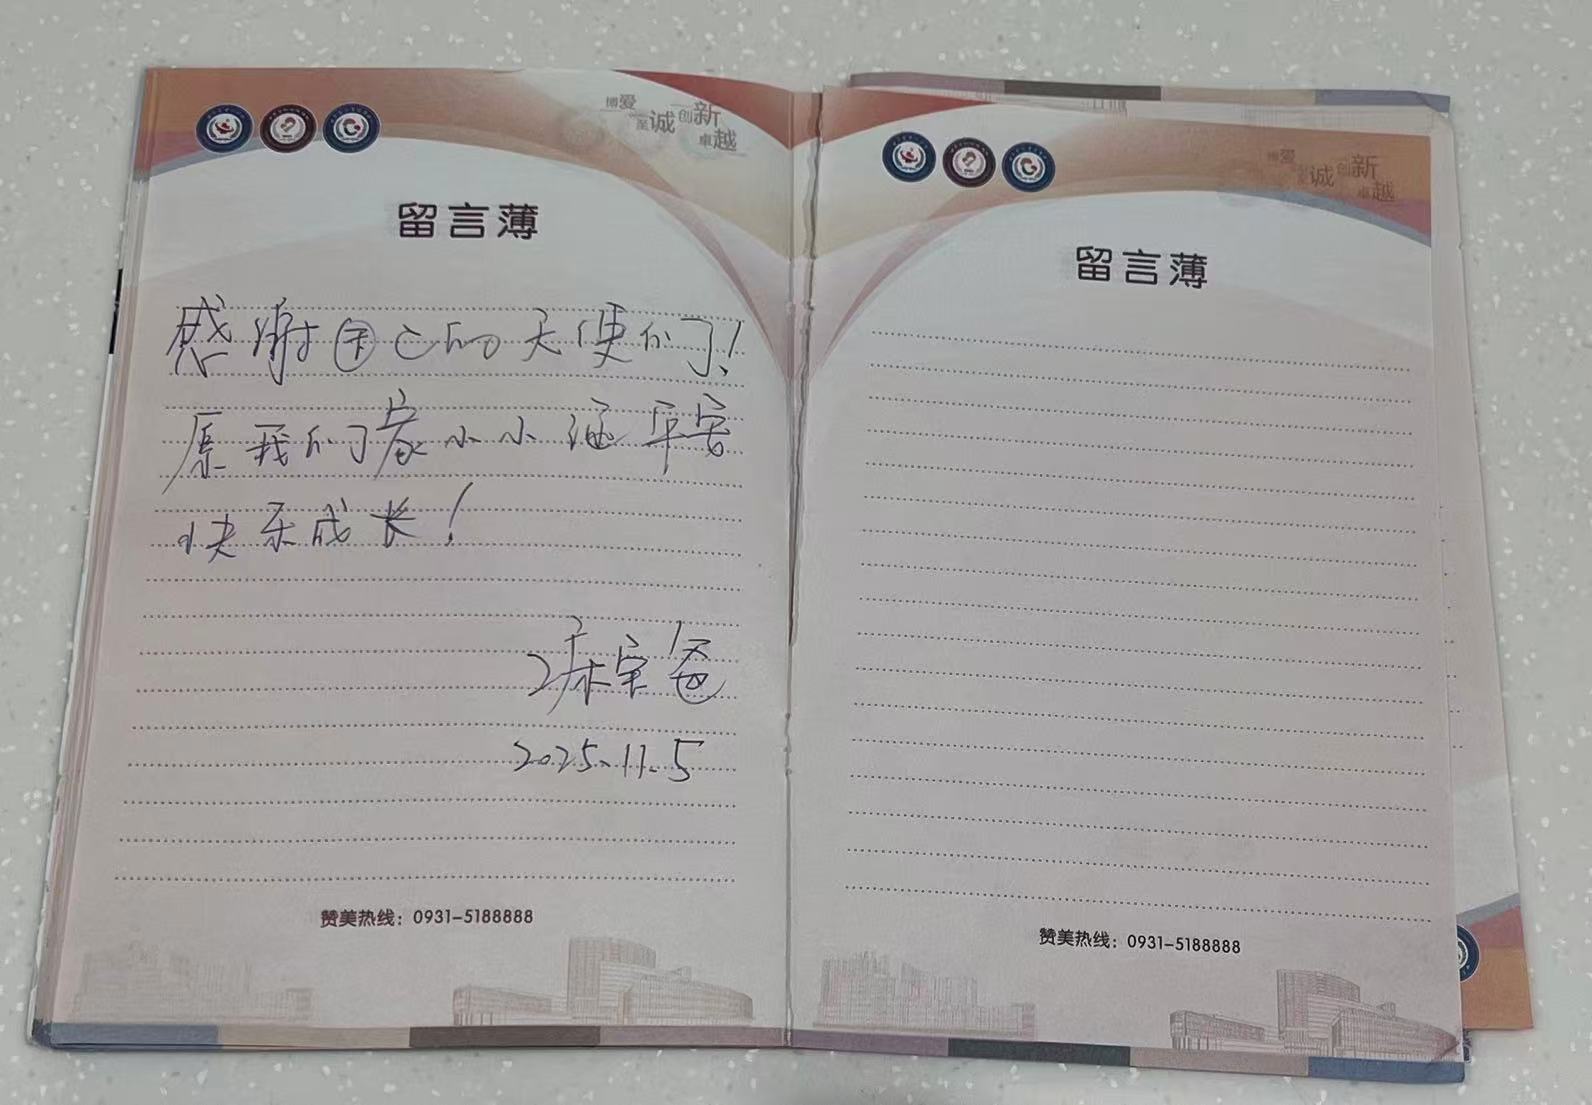 博爱
至诚
创新
卓越
留言薄
感谢
的天使们了!
愿我们家小小涵平安
快乐成长!
宝爸
2025.11.5
赞美热线：0931-5188888
博爱
至诚
创新
卓越
留言薄
赞美热线：0931-5188888